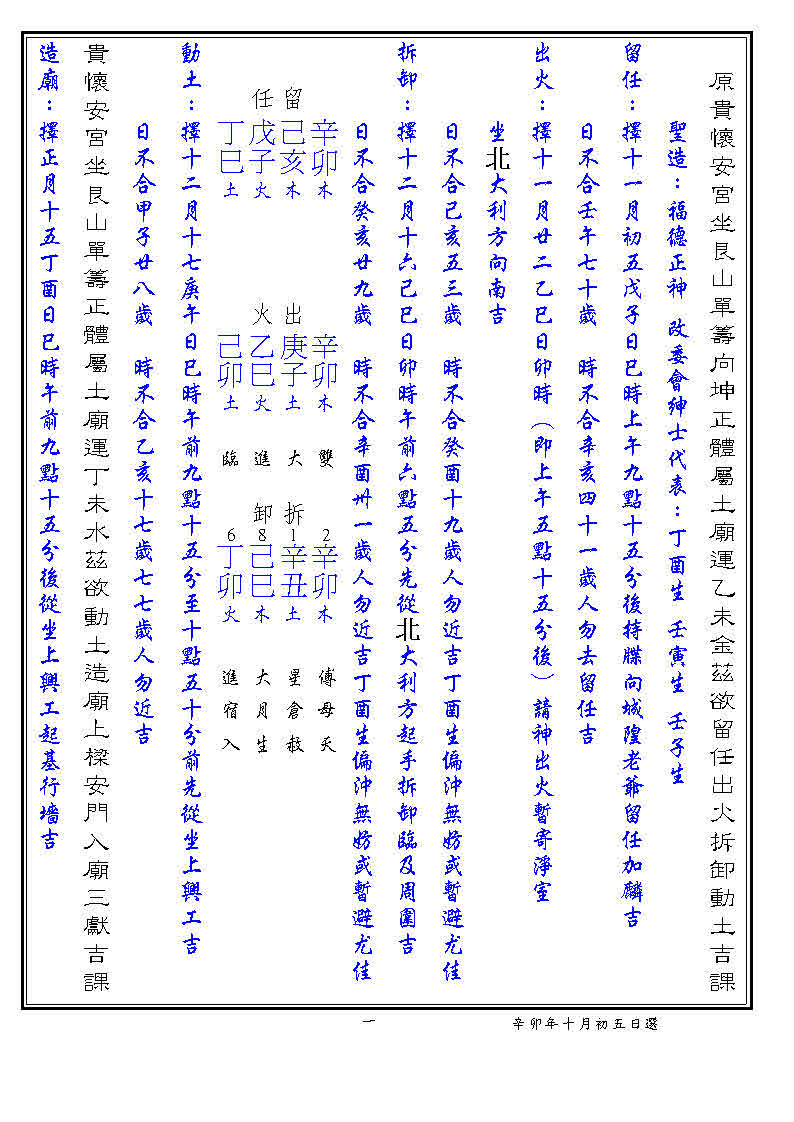 原貴懷安宮坐艮山單籌向坤正體屬土廟運乙未金茲欲留任出火拆卸動土吉課
聖造：福德正神 改委會紳士代表：丁酉生 壬寅生 壬子生
留任：擇十一月初五戊子日巳時上午九點十五分後持牒向城隍老爺留任加麟吉
日不合壬午七十歲 時不合辛亥四十一歲人勿去留任吉
出火：擇十一月廿二乙巳日卯時（即上午五點十五分後）請神出火暫寄淨室
坐北大利方向南吉
日不合己亥五三歲 時不合癸酉十九歲人勿近吉丁酉生偏沖無妨或暫避尤佳
拆卸：擇十二月十六己巳日卯時午前六點五分先從北大利方起手拆卸臨及周圍吉
日不合癸亥廿九歲 時不合辛酉卅一歲人勿近吉丁酉生偏沖無妨或暫避尤佳
留任
辛卯木
己亥木
戊子火
丁巳土
出火
辛卯木
庚子土
乙巳火
己卯土
雙大進臨
拆卸
2辛卯木
1辛丑土
8己巳木
6丁卯火
傅母天
星倉救
大月生
進宿入
動土：擇十二月十七庚午日巳時午前九點十五分至十點五十分前先從坐上興工吉
日不合甲子廿八歲 時不合乙亥十七歲七七歲人勿近吉
貴懷安宮坐艮山單籌正體屬土廟運丁未水茲欲動土造廟上樑安門入廟三獻吉課
造廟：擇正月十五丁酉日巳時午前九點十五分後從坐上興工起基行墻吉
一
辛卯年十月初五日選